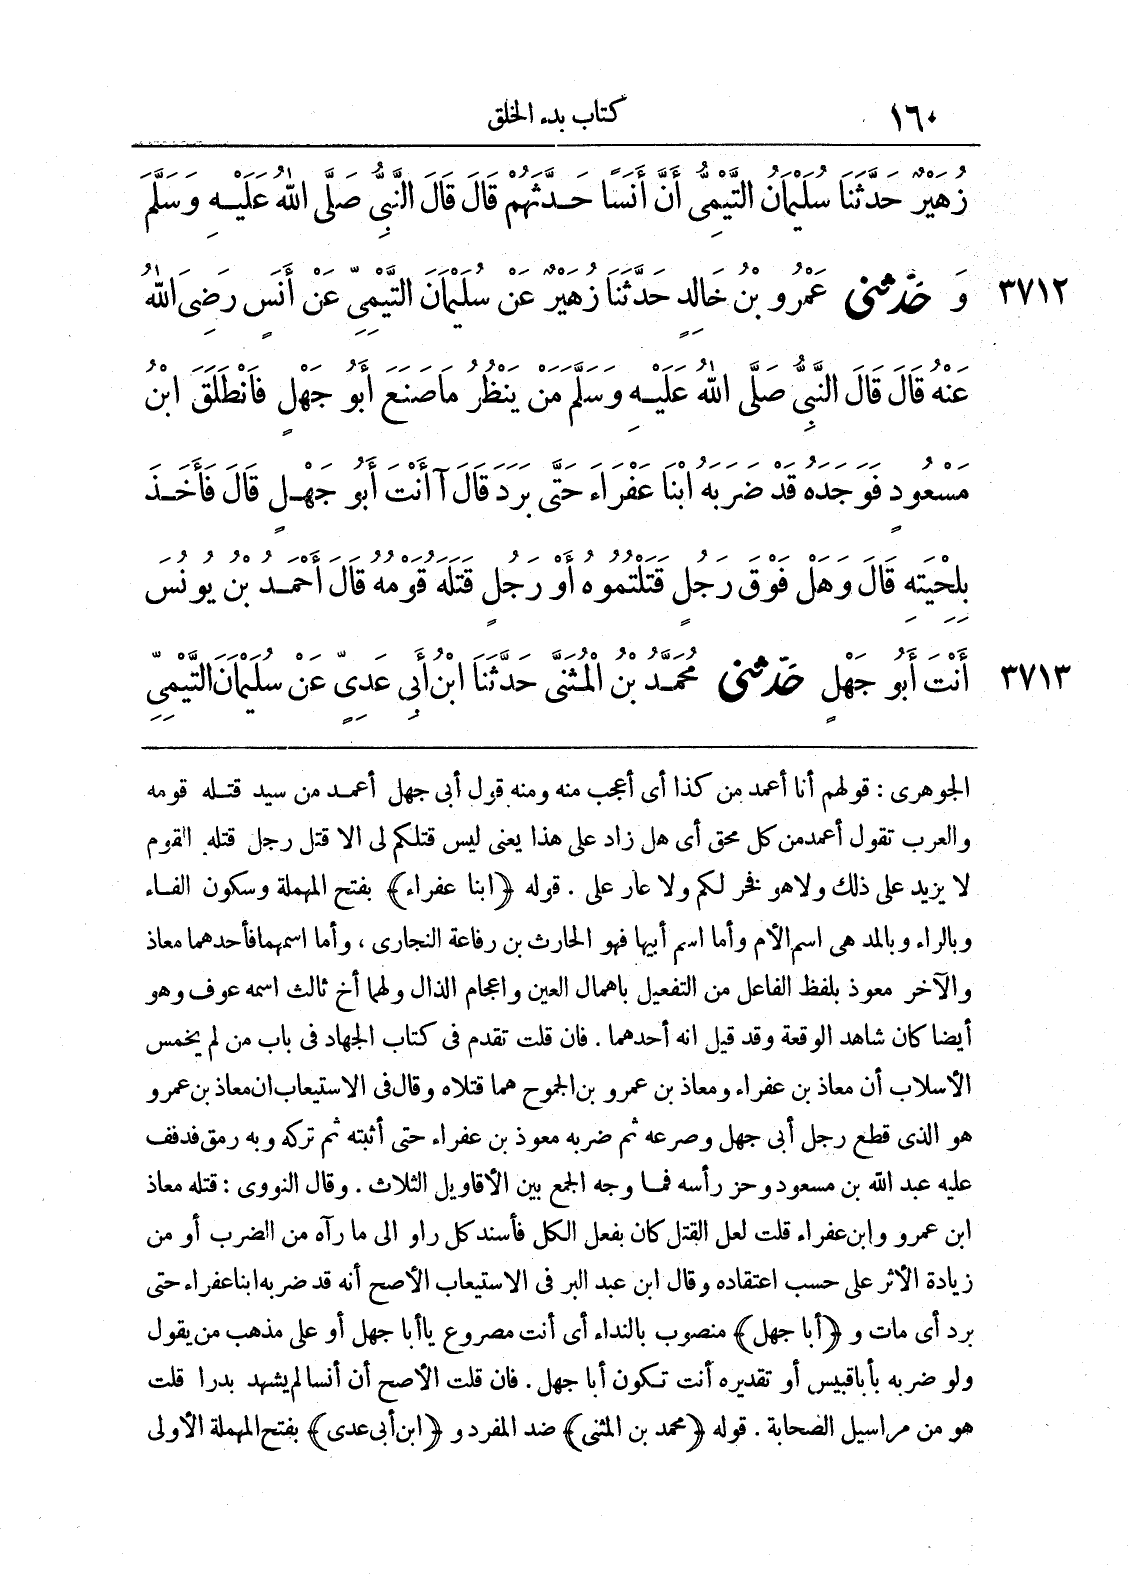 ١٦٠ كتاب بدء الخلق
زُهَيْرٌ حَدَّثَنَا سُلَيْمَانُ التَّيْمِىُّ أَنَّ أَنَسًا حَدَّثَهُمْ قَالَ قَالَ النَّبِىُّ صَلَّى اللهُ عَلَيْهِ وَسَلَّمَ
٣٧١٢ وَ حَدَّثَنِى عَمْرُو بْنُ خَالِدٍ حَدَّثَنَا زُهَيْرٌ عَنْ سُلَيْمَانَ التَّيْمِىِّ عَنْ أَنَسٍ رَضِىَ اللهُ
عَنْهُ قَالَ قَالَ النَّبِىُّ صَلَّى اللهُ عَلَيْهِ وَسَلَّمَ مَنْ يَنْظُرُ مَا صَنَعَ أَبُو جَهْلٍ فَانْطَلَقَ ابْنُ
مَسْعُودٍ فَوَجَدَهُ قَدْ ضَرَبَهُ ابْنَا عَفْرَاءَ حَتَّى بَرَدَ قَالَ آأَنْتَ أَبُو جَهْلٍ قَالَ فَأَخَذَ
بِلِحْيَتِهِ قَالَ وَهَلْ فَوْقَ رَجُلٍ قَتَلْتُمُوهُ أَوْ رَجُلٍ قَتَلَهُ قَوْمُهُ قَالَ أَحْمَدُ بْنُ يُونُسَ
٣٧١٣ أَنْتَ أَبُو جَهْلٍ حَدَّثَنِى مُحَمَّدُ بْنُ الْمُثَنَّى حَدَّثَنَا ابْنُ أَبِى عَدِىٍّ عَنْ سُلَيْمَانَ التَّيْمِىِّ
الجوهرى : قولهم أنا أعمد من كذا أى أعجب منه ومنه قول أبى جهل أعمد من سيد قتله قومه
والعرب تقول أعمد من كل محق أى هل زاد على هذا يعنى ليس قتلكم لى الا قتل رجل قتله القوم
لا يزيد على ذلك ولا هو فخر لكم ولا عار على . قوله ﴿ابنا عفراء﴾ بفتح المهملة وسكون الفاء
وبالراء وبالمد هى اسم الأم وأما اسم أبيها فهو الحارث بن رفاعة النجارى ، وأما اسمهما فأحدهما معاذ
والآخر معوذ بلفظ الفاعل من التفعيل باهمال العين واعجام الذال ولهما أخ ثالث اسمه عوف وهو
أيضا كان شاهد الوقعة وقد قيل انه أحدهما . فان قلت تقدم فى كتاب الجهاد فى باب من لم يخمس
الأسلاب أن معاذ بن عفراء ومعاذ بن عمرو بن الجموح هما قتلاه وقال فى الاستيعاب ان معاذ بن عمرو
هو الذى قطع رجل أبى جهل وصرعه ثم ضربه معوذ بن عفراء حتى أثبته ثم تركه وبه رمق فدفف
عليه عبد الله بن مسعود وحز رأسه فما وجه الجمع بين الأقاويل الثلاث . وقال النووى : قتله معاذ
ابن عمرو وابن عفراء قلت لعل القتل كان بفعل الكل فأسند كل راو الى ما رآه من الضرب أو من
زيادة الأثر على حسب اعتقاده وقال ابن عبد البر فى الاستيعاب الأصح أنه قد ضربه ابنا عفراء حتى
برد أى مات و ﴿أبا جهل﴾ منصوب بالنداء أى أنت مصروع يا أبا جهل أو على مذهب من يقول
ولو ضربه بأبا قبيس أو تقديره أنت تكون أبا جهل . فان قلت الأصح أن أنسا لم يشهد بدرا قلت
هو من مراسيل الصحابة . قوله ﴿محمد بن المثنى﴾ ضد المفرد و ﴿ابن أبى عدى﴾ بفتح المهملة الأولى